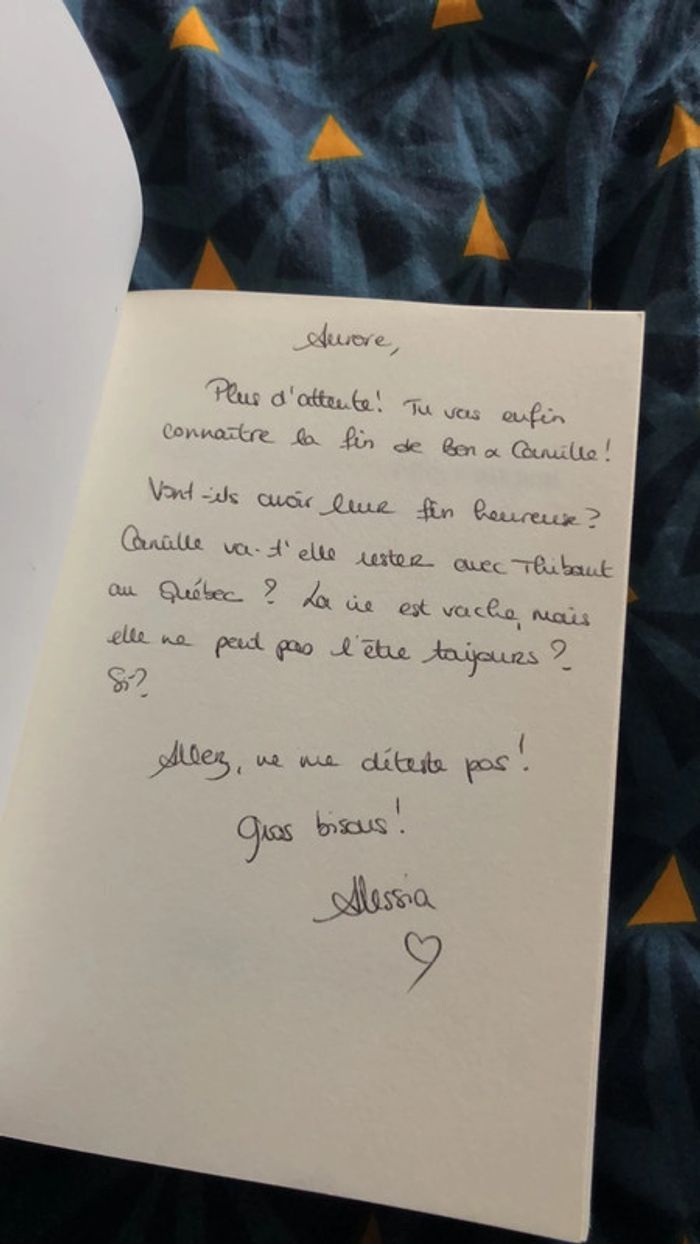 Aurore,
Plus d'attente! Tu vas enfin
connaître la fin de Ben & Camille!
Vont-ils avoir leur fin heureuse?
Camille va-t'elle rester avec Thibaut
au Québec? La vie est vache, mais
elle ne peut pas l'être toujours?
Si?
Allez, ne me déteste pas!
Gros bisous!
Alessia